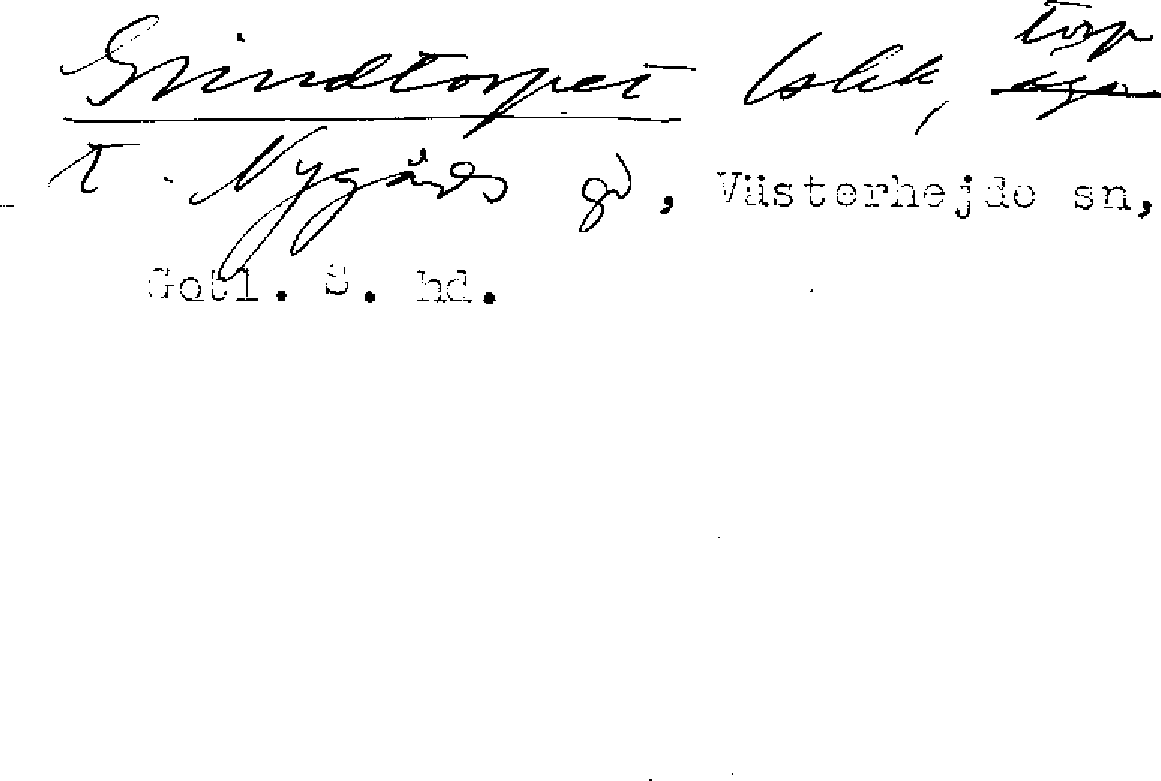 Grindtorpet torp
t. Nygårds gd, Västerhejde sn,
Gotl. S. hd.